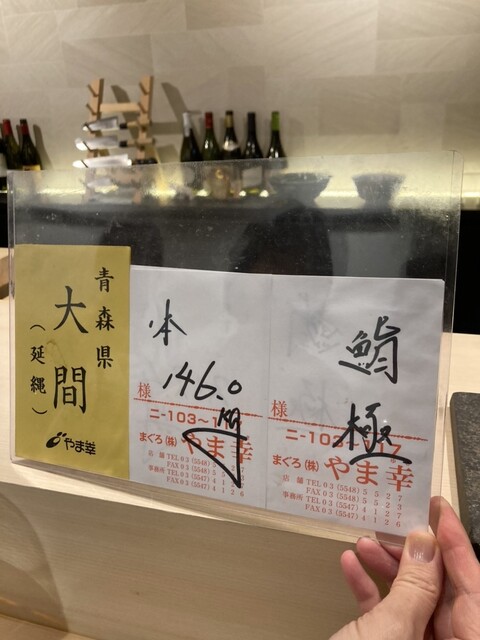 青森県
大間
（延縄）
やま幸
本
146.0
kg
様
ニ-103~1
まぐろ(株)やま幸
店舗 TEL 03 (5548) 5
FAX 03 (5548) 5
事務所 TEL 03 (5547) 4
FAX 03 (5547) 4126
鮨
極
様
ニ-102 7
まぐろ(株)やま幸
店舗 TEL 03 (5548) 5527
FAX 03 (5548) 5523
事務所 TEL 03 (5547) 4127
FAX 03 (5547) 4126